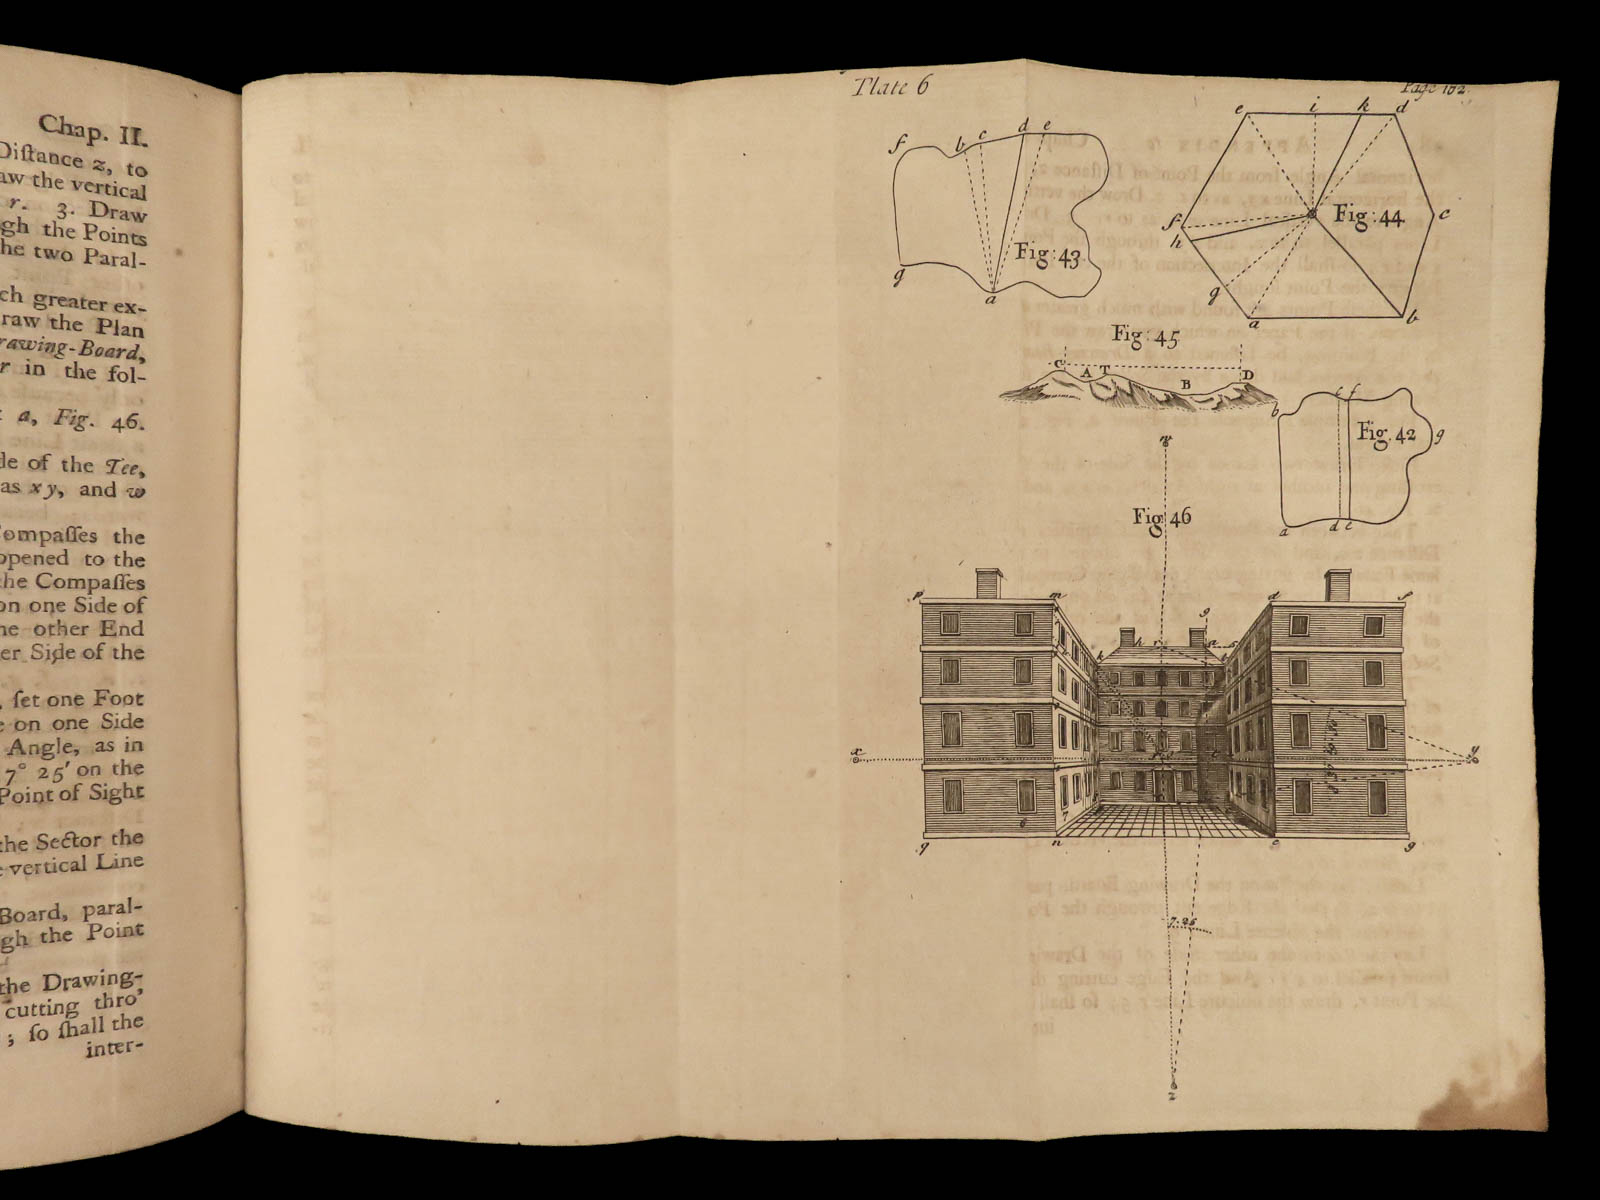 Chap. II.
Diſtance z, to
aw the vertical
r. 3. Draw
gh the Points
he two Paral-
ch greater ex-
raw the Plan
rawing-Board,
r in the fol-
a, Fig. 46.
de of the Tee,
as x y, and w
Compaſſes the
opened to the
the Compaſſes
on one Side of
he other End
er Side of the
, ſet one Foot
e on one Side
Angle, as in
7° 25′ on the
Point of Sight
the Sector the
e vertical Line
Board, paral-
gh the Point
the Drawing-
cutting thro'
; ſo ſhall the
inter-
Plate 6
Page 162
f b c d e
g a
Fig: 43
e i k d
f h c
g a b
Fig: 44
Fig: 45
C A T B D
b c f
g
a d e
Fig. 42
w
Fig 46
p m d f
g
k h r a s
x y
q n e g
7.25
z